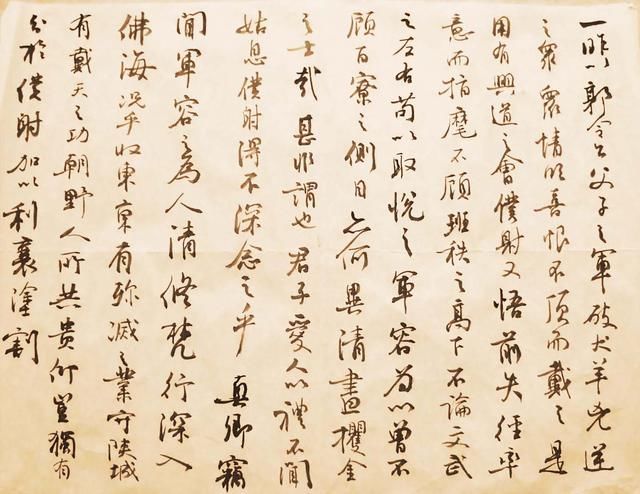 一昨以郭令公父子之軍破犬羊兇逆
之眾眾情欣喜恨不頂而戴之是
用有興道之會僕射又悟前失徑率
意而指麾不顧班秩之高下不論文武
之左右苟以取悅之軍容為心曾不
顧百寮之側目亦何異清晝攫金
之士哉甚非謂也君子愛人以禮不聞
姑息僕射得不深念之乎真卿竊
聞軍容之為人清修梵行深入
佛海況乎收東京有殄滅之業守陝城
有戴天之功朝野人所共貴仰豈獨有
分於僕射加以利衰塗割